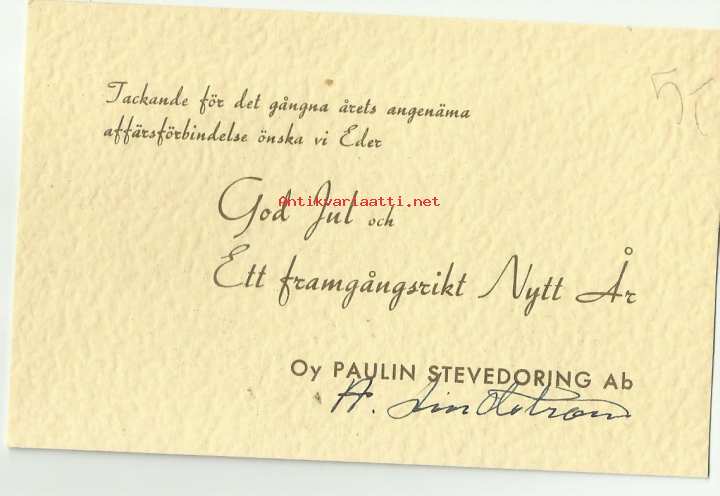 Tackande för det gångna årets angenäma
affärsförbindelse önska vi Eder
God Jul och
Antikvariaatti.net
Ett framgångsrikt Nytt År
Oy PAULIN STEVEDORING Ab
H. Lindström